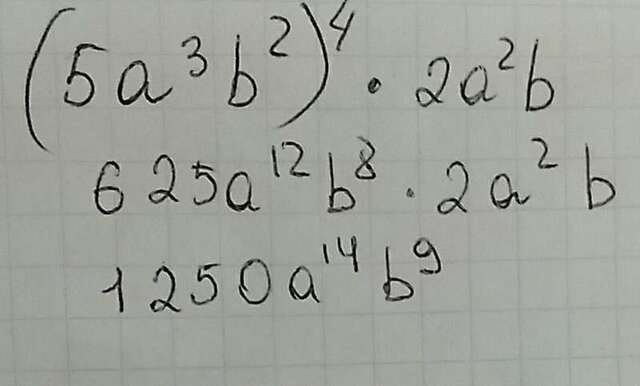 (5a³b²)⁴ · 2a²b
625a¹²b⁸ · 2a²b
1250a¹⁴b⁹